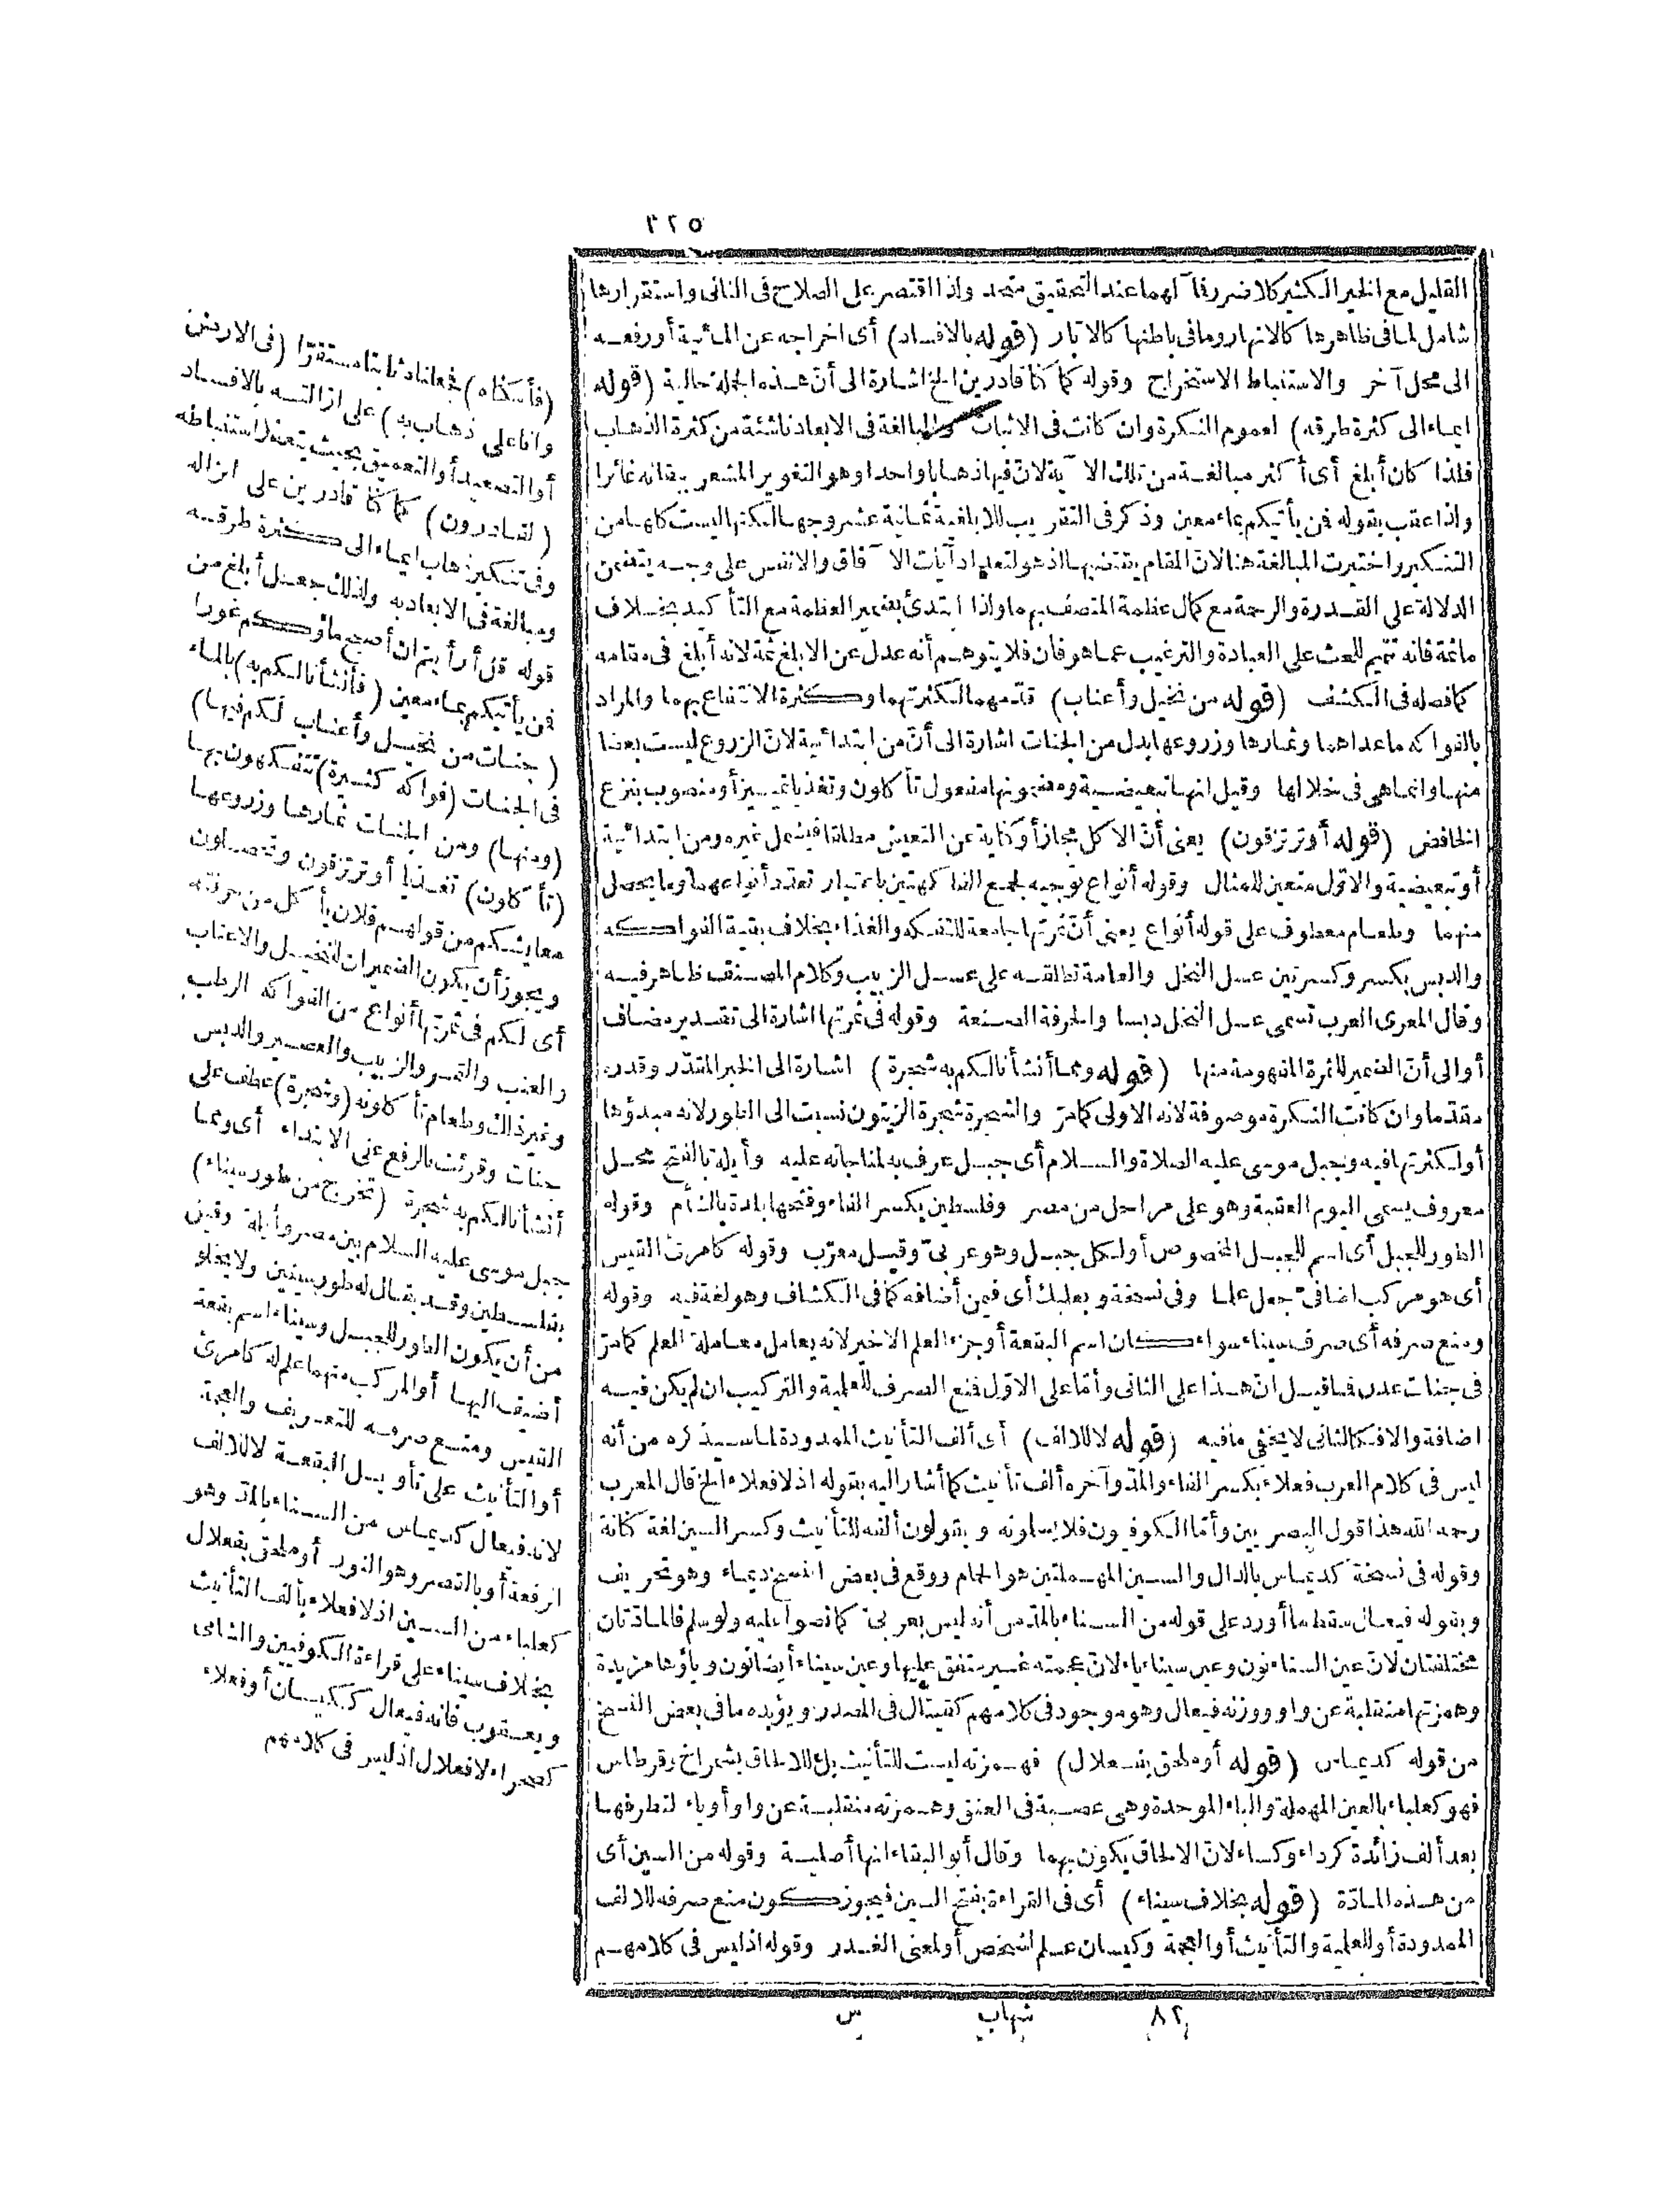 ٣٢٥
القليل مع الخير الكثير كلا ضرر فمآلهما عند التحقيق متحد واذا اقتصر على الصلاح فى الثانى واستقرارها
شامل لما فى ظاهرها كالانهار وما فى باطنها كالآبار (قوله بالافساد) أى اخراجه عن المائية أو رفعه
الى محل آخر والاستنباط الاستخراج وقوله كما كنا قادرين الخ اشارة الى أنّ هذه الجملة حالية (قوله
ايماء الى كثرة طرقه) لعموم النكرة وان كانت فى الاثبات والمبالغة فى الابعاد ناشئة من كثرة الذهاب
فلذا كان أبلغ أى أكثر مبالغة من تلك الآية لانّ فيها ذهابا واحدا وهو التغوير المشعر ببقائه غائرا
ولذا عقب بقوله فمن يأتيكم بماء معين وذكر فى التقريب للابلغية ثمانية عشر وجها لكنها ليست كلها من
التنكير واختيرت المبالغة هنا لانّ المقام يقتضيها اذ هو لتعداد آيات الآفاق والانفس على وجه يتضمن
الدلالة على القدرة والرحمة مع كمال عظمة المتصف بهما ولذا ابتدئ بضمير العظمة مع التأكيد بخلاف
ما ثمة فانه تتميم للحث على العبادة والترغيب عما هو فان فلا يتوهم أنه عدل عن الابلغ ثمة لانه أبلغ فى مقامه
كما فصله فى الكشف (قوله من نخيل وأعناب) قدّمهما لكثرتهما وكثرة الانتفاع بهما والمراد
بالفواكه ما عداهما وثمارها وزروعها بدل من الجنات اشارة الى أنّ من ابتدائية لانّ الزروع ليست بعضا
منها وانما هى فى خلالها وقيل انها تبعيضية ومضمونها مفعول تأكلون وتغذيا تمييز أو منصوب بنزع
الخافض (قوله أو ترتزقون) يعنى أنّ الاكل مجاز أو كناية عن التعيش مطلقا فيشمل غيره ومن ابتدائية
أو تبعيضية والاوّل متعين للمثال وقوله أنواع توجيه لجمع الفاكهتين باعتبار تعدّد أنواعهما وما يحصل
منهما وطعام معطوف على قوله أنواع يعنى أنّ ثمرتها جامعة للتفكه والغذاء بخلاف بقية الفواكه
والدبس بكسر وكسرتين عسل النخل والعامة تطلقه على عسل الزبيب وكلام المصنف ظاهر فيه
وقال المعرى العرب تسمى عسل النخل دبسا والحرفة الصنعة وقوله فى ثمرتها اشارة الى تقدير مضاف
أو الى أنّ الضمير للثمرة المفهومة منها (قوله ومما أنشأنا لكم به شجرة) اشارة الى الخبر المقدّر وقدره
مقدما وان كانت النكرة موصوفة لانه الاولى كما مرّ والشجرة شجرة الزيتون نسبت الى الطور لانه مبدؤها
أو لكثرتها فيه وجبل موسى عليه الصلاة والسلام أى جبل عرف به لمناجاته عليه وأيلة بالفتح محل
معروف يسمى اليوم العقبة وهو على مراحل من مصر وفلسطين بكسر الفاء وفتحها بلدة بالشأم وقوله
الطور للجبل أى اسم للجبل المخصوص أو لكل جبل وهو عربىّ وقيل معرّب وقوله كامرئ القيس
أى هو مركب اضافىّ جعل علما وفى نسخة وبعلبك أى فيمن أضافه كما فى الكشاف وهو لغة فيه وقوله
ومنع صرفه أى صرف سيناء سواء كان اسم البقعة أو جزء العلم الاخير لانه يعامل معاملة العلم كما مرّ
فى جنات عدن فما قيل انّ هذا على الثانى وأمّا على الاوّل فمنع الصرف للعلمية والتركيب ان لم يكن فيه
اضافة والا فكالثانى لا يخفى ما فيه (قوله لا للالف) أى ألف التأنيث الممدودة لما سيذكره من أنه
ليس فى كلام العرب فعلاء بكسر الفاء والمدّ وآخره ألف تأنيث كما أشار اليه بقوله اذ لا فعلاء الخ قال المعرب
رحمه الله هذا قول البصريين وأمّا الكوفيون فلا يسلمونه ويقولون ألفه للتأنيث وكسر السين لغة كنانة
وقوله فى نسخة كديماس بالدال والسين المهملتين هو الحمام ووقع فى بعض النسخ ديماء وهو تحريف
وبقوله فيعال سقط ما أورد على قوله من السناء بالمدّ من أنه ليس بعربىّ كما نصوا عليه ولو سلم فالمادّتان
مختلفتان لانّ عين السناء نون وعين سيناء ياء لانّ عجمته غير متفق عليها وعين سيناء أيضا نون وياؤها مزيدة
وهمزتها منقلبة عن واو ووزنه فيعال وهو موجود فى كلامهم كقيتال فى المصدر ويؤيده ما فى بعض النسخ
من قوله كديماس (قوله أو ملحق بفعلال) فهمزته ليست للتأنيث بل للالحاق بشمراخ وقرطاس
فهو كعلباء بالعين المهملة والباء الموحدة وهى عصبة فى العنق وهمزته منقلبة عن واو أو ياء لتطرفها
بعد ألف زائدة كرداء وكساء لانّ الالحاق يكون بهما وقال أبو البقاء انها أصلية وقوله من السين أى
من هذه المادّة (قوله بخلاف سيناء) أى فى القراءة بفتح السين فيجوز كون منع صرفه للالف
الممدودة أو للعلمية والتأنيث أو العجمة وكيسان علم لشخص أو لمعنى الغدر وقوله اذ ليس فى كلامهم
(فأسكناه) فجعلناه ثابتا مستقرّا (فى الارض
وانا على ذهاب به) على ازالته بالافساد
أو التصعيد أو التعميق بحيث يتعذر استنباطه
(لقادرون) كما كنا قادرين على انزاله
وفى تنكير ذهاب ايماء الى كثرة طرقه
ومبالغة فى الابعاد به ولذلك جعل أبلغ من
قوله قل أرأيتم ان أصبح ماؤكم غورا
فمن يأتيكم بماء معين (فأنشأنا لكم به) بالماء
(جنات من نخيل وأعناب لكم فيها)
فى الجنات (فواكه كثيرة) تتفكهون بها
(ومنها) ومن الجنات ثمارها وزروعها
(تأكلون) تغذيا أو ترتزقون وتحصلون
معايشكم من قولهم فلان يأكل من حرفته
ويجوز أن يكون الضميران للنخيل والاعناب
أى لكم فى ثمرتها أنواع من الفواكه الرطب
والعنب والتمر والزبيب والعصير والدبس
وغير ذلك وطعام تأكلونه (وشجرة) عطف على
جنات وقرئت بالرفع على الابتداء أى ومما
أنشأنا لكم به شجرة (تخرج من طور سيناء)
جبل موسى عليه السلام بين مصر وأيلة وقيل
بفلسطين وقد يقال له طور سينين ولا يخلو
من أن يكون الطور للجبل وسيناء اسم بقعة
أضيف اليها أو المركب منهما علم له كامرئ
القيس ومنع صرفه للتعريف والعجمة
أو التأنيث على تأويل البقعة لا للالف
لانه فيعال كديماس من السناء بالمدّ وهو
الرفعة أو بالقصر وهو النور أو ملحق بفعلال
كعلباء من السين اذ لا فعلاء بألف التأنيث
بخلاف سيناء على قراءة الكوفيين والشامى
ويعقوب فانه فيعال ككيسان أو فعلاء
كصحراء لا فعلال اذ ليس فى كلامهم
٨٢ شهاب س